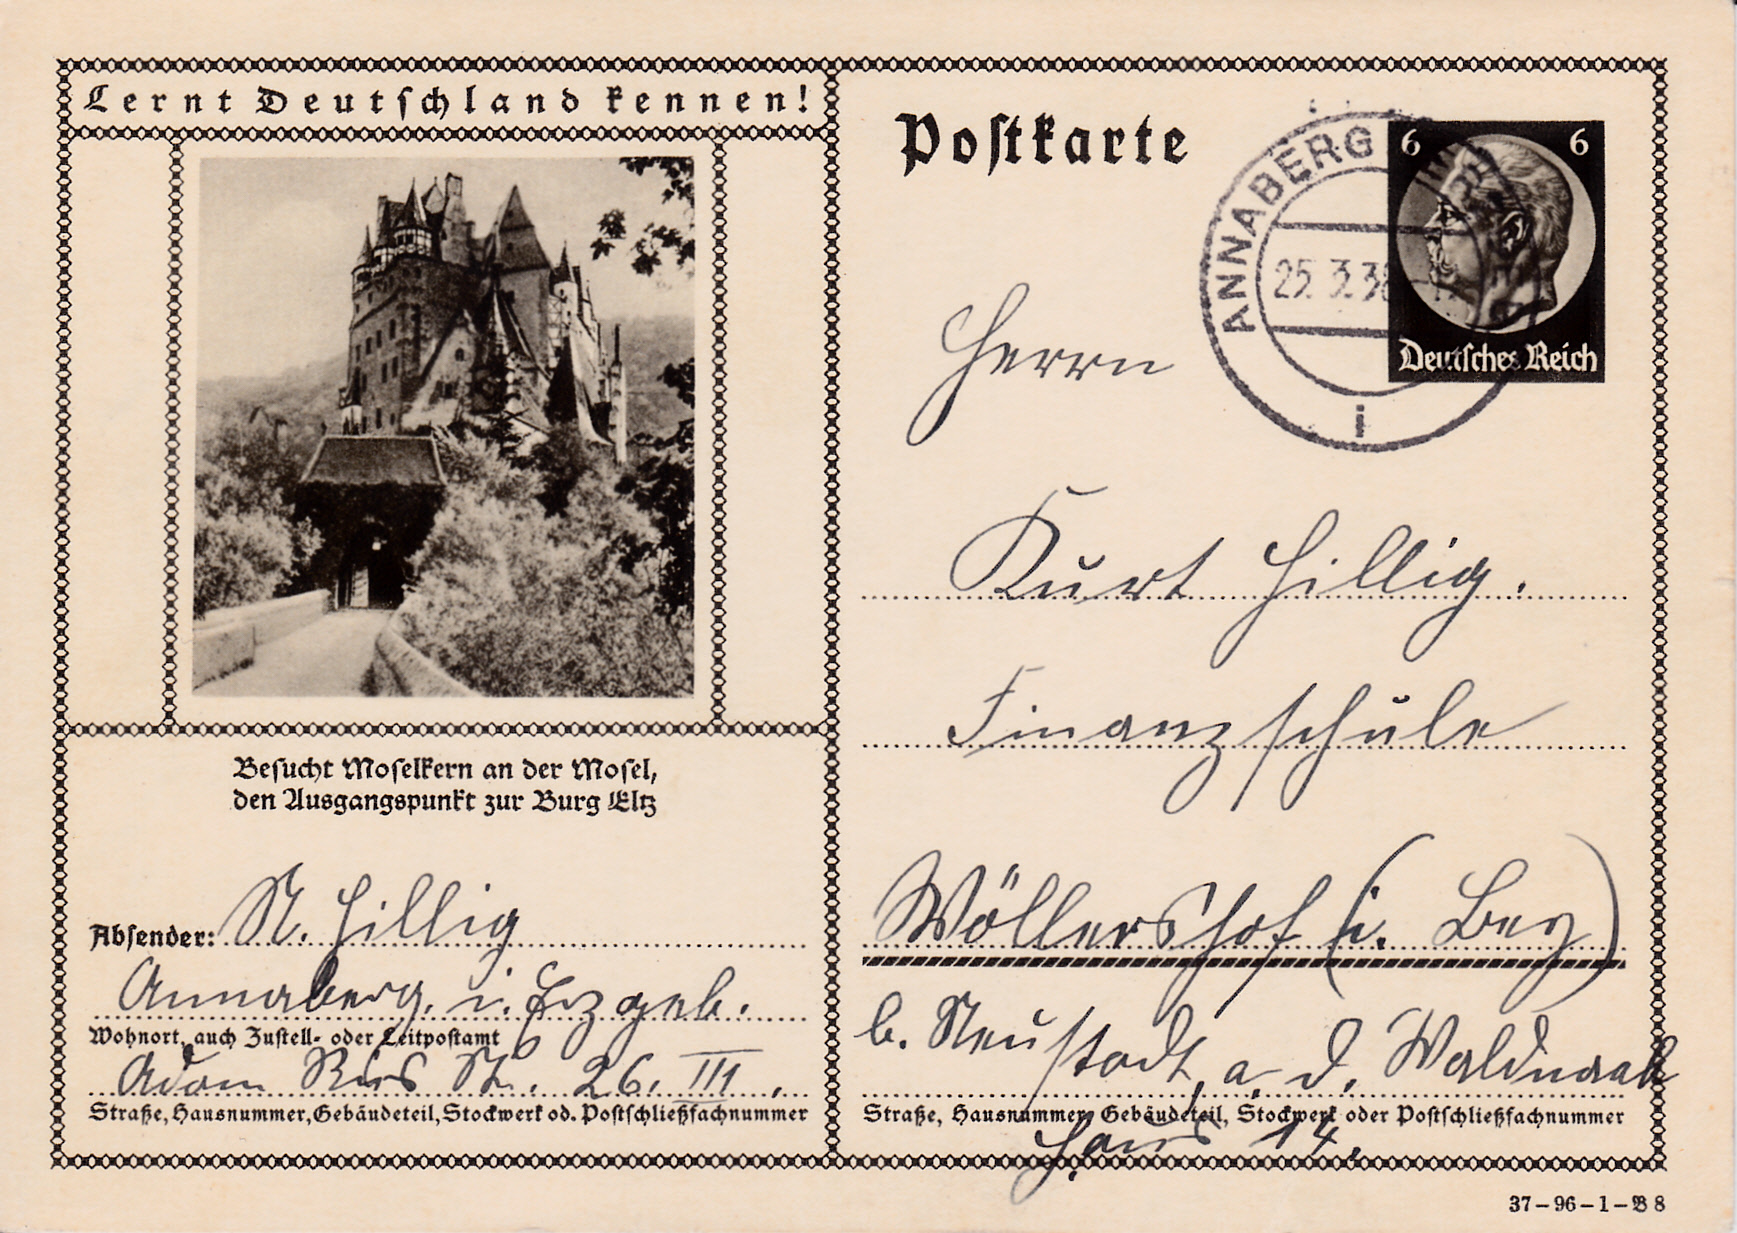 Lernt Deutschland kennen!
Postkarte
ANNABERG
25.3.38
i
6 6
Deutsches Reich
Herrn
Kurt Hillig.
Finanzschule
Wöllershof (i. Bay)
b. Neustadt, a. d. Waldnaab
Haus 14.
Straße, Hausnummer, Gebäudeteil, Stockwerk oder Postschließfachnummer
Besucht Moselkern an der Mosel,
den Ausgangspunkt zur Burg Eltz
Absender: A. Hillig
Annaberg. i. Erzgeb.
Wohnort, auch Zustell- oder Leitpostamt
Adam Ries St. 26. III.
Straße, Hausnummer, Gebäudeteil, Stockwerk od. Postschließfachnummer
37-96-1-B 8